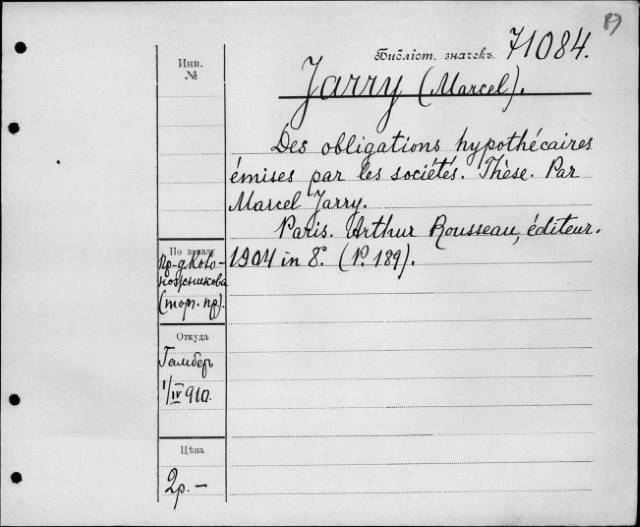 87
Библіот. значекъ 71084.
Инв.
№
Jarry (Marcel).
Des obligations hypothécaires
émises par les sociétés. Thèse. Par
Marcel Jarry.
Paris. Arthur Rousseau, éditeur.
1904 in 8°. (P. 189).
По заказу
(торг. пр).
Откуда
Гамберъ
1/IV 910.
Цѣна
2р. —